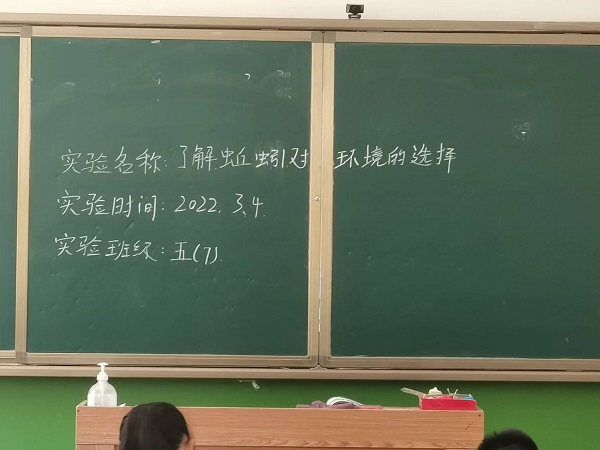 实验名称:了解蚯蚓对环境的选择
实验时间:2022.3.4.
实验班级:五(7)